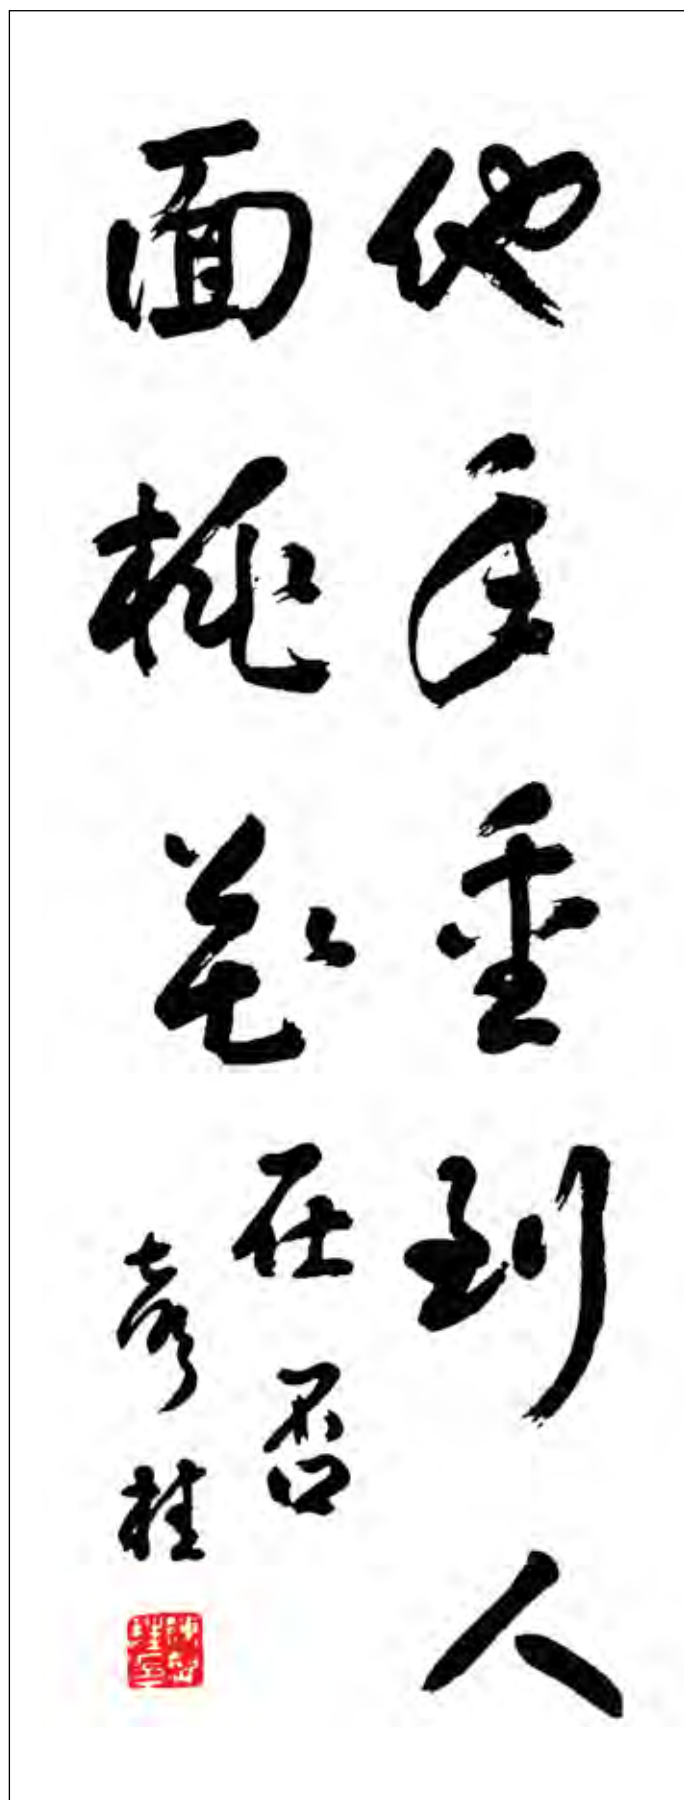 他年重到人
面桃花
在否
彦桂